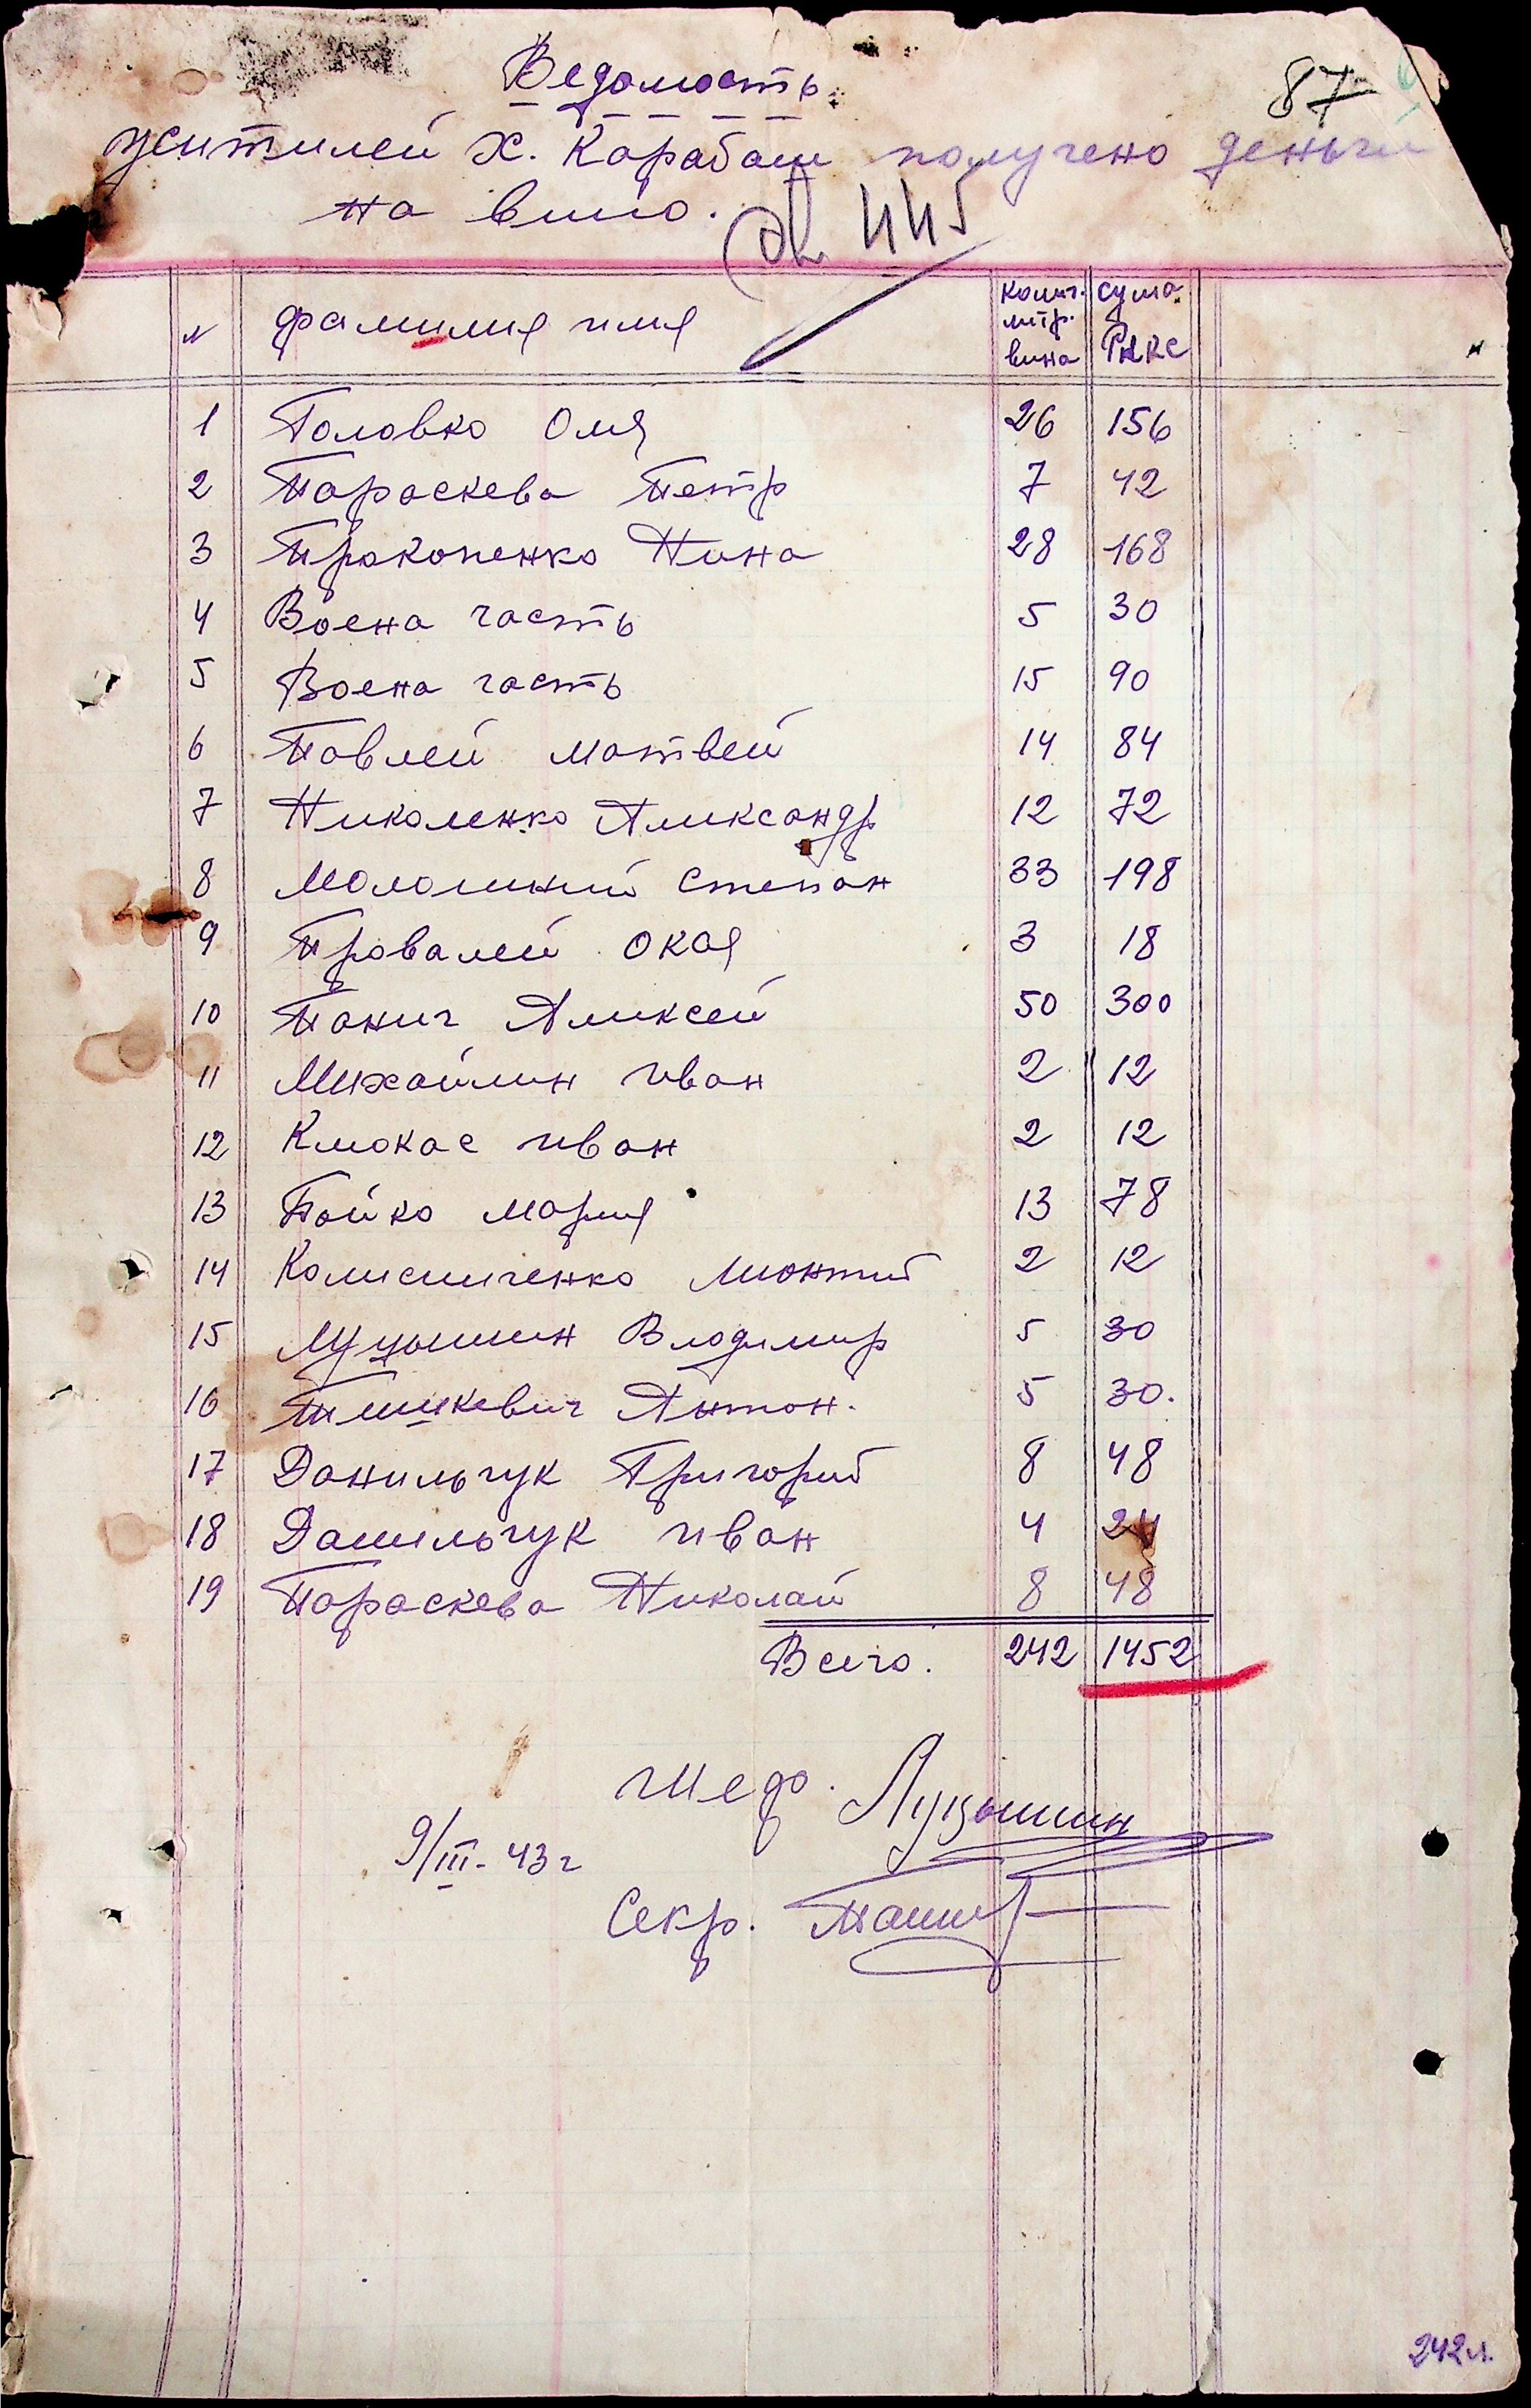 Ведомость
87
жителей х. Карабаш получено деньги
на вино.
445
№ фамилия имя колич. литр. вина сума РККС
1 Головко Оля 26 156
2 Параскева Петр 7 42
3 Прокопенко Нина 28 168
4 Воена часть 5 30
5 Воена часть 15 90
6 Павлей Матвей 14 84
7 Николенко Александр 12 72
8 Степан 33 198
9 Провалей 3 18
10 Панич Аликсей 50 300
11 Михайлин иван 2 12
12 Клюкас иван 2 12
13 Пойко Мария 13 78
14 Колисниченко 2 12
15 Луцышин Владимир 5 30
16 Антон. 5 30.
17 Данильчук Григорий 8 48
18 Данильчук иван 4 24
19 Параскева Николай 8 48
Всего. 242 1452
Шеф. Луцышин
9/III-43г
Секр.
242л.